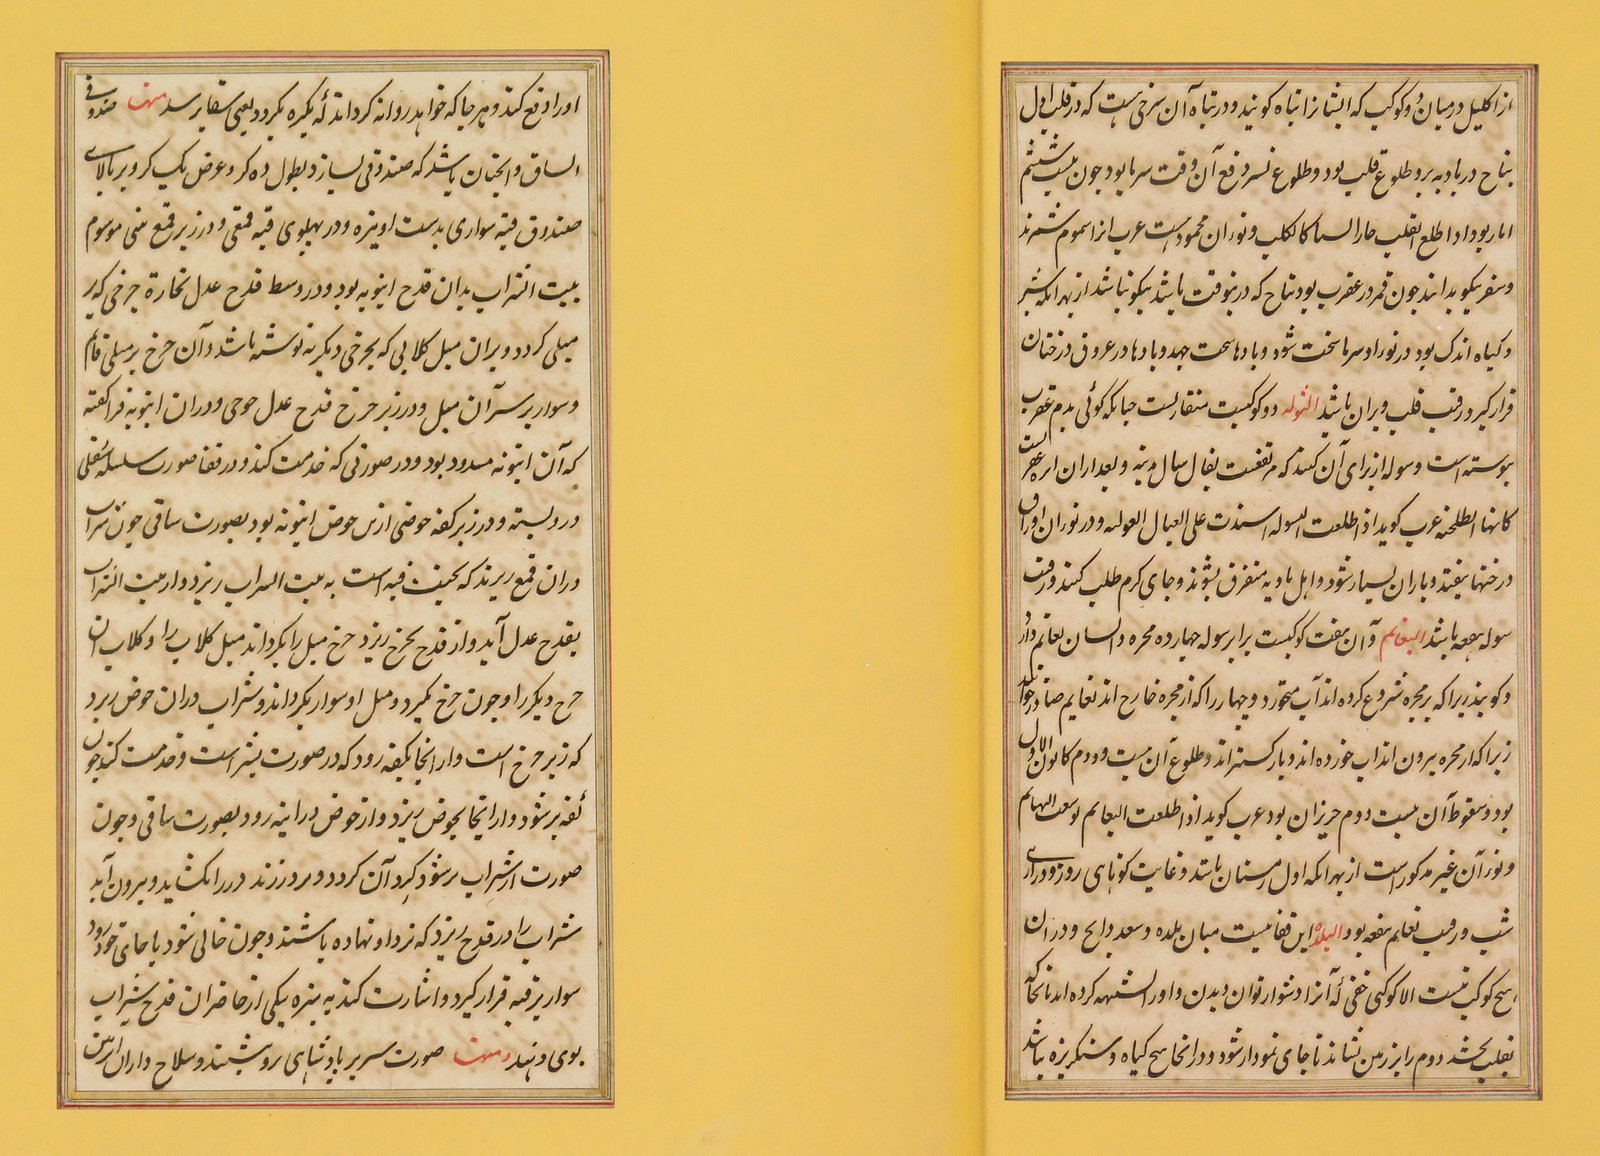 از اکلیل در میان دو کوکب که ایشانرا نیاط کویند و در نیاط آن سرخی است که در قلب اول
نتاج در بادیه بر و طلوع قلب بود و طلوع نسر واقع آن وقت سرما بود جون بیست ششم
ایار بود اذا طلع القلب جاء الشتا کالکلب و نوء آن محمود است عرب انرا شموم شمرند
و سفر نیکو بدانند جون قمر در عقرب بود نتاج که درین وقت باشد نیکو نباشد از بهر انکه شیر
و کیاه اندک بود در نوء او سرما سخت شود و بادها سخت جهد و بادها در عروق درختان
قرار کیرد و رقیب قلب دبران باشد الشوله دو کوکبست متقاربست جنانکه کوئی بدم عقرب
بیوسته است و شوله از برای آن کنند که مرتفعست یقال شال ذنبه و بعد از ان ابره عقرب است
کانها لطخه عرب کوید اذ اطلعت الشوله اشتدت علی العیال العوله و در نوء ان اوراق
درختها بیفتد و باران بسیار شود و اهل بادیه متفرق بشوند و جای کرم طلب کنند و رقیب
شوله هقعه باشد النعایم و آن هفت کوکبست برابر شوله جهار ده مجره و السان نعایم وارد
و کویند زیرا که بر مجره شروع کرده اند آب میخورد و جهار را که از مجره خارج اند نعایم صادر خوانند
زیرا که از مجره بیرون اند آب خورده اند و باز کشته اند و طلوع آن بیست و دوم کانون الاول
بود و سقوط آن بیست دوم حزیران بود عرب کوید اذا طلعت النعایم توسعت البهایم
و نوء آن غیر مذکور است از بهر انکه اول زمستان باشد و غایت کوتاهی روز و درازی
شب و رقیب نعایم هنعه بود البلده این فضائیست میان بلده و سعد ذابح و در ان
هیج کوکب نیست الا کوکبی خفی که آنرا دشوار توان دیدن و او را تشبیه کرده اند بانجا که
ثعلب بخسبد دوم را بر زمین نشاند تا جای نمودار شود و در انجا هیج کیاه و سنکریزه نباشد
او را وقع کند و هر جا که خواهد روانه کرداند یکره بکردد یعنی استقا برسد و منها صندوقی
الساق و الجنان باشد که صندوقی بسازد بطول ده کز و عرض یک کز و بر بالای
صندوق قبه سواری بدست او نیزه و در بهلوی قبه قمعی و در زیر قمع بیتی موسوم
ببیت الشراب بدان قدح انبوبه بود و در وسط قدح عدل بخاره جرخی که بر
میلی کردد و بران میل کلابی که بجرخی دیکر به نوشته باشد و آن جرخ بر میلی قائم
و سوار بر سر آن میل و در زیر جرخ قدح عدل حوضی و دران انبوبه فراکفته
که آن انبوبه مسدود بود و در صورتی که خدمت کند و در قفا صورت سلسله ثقلی
در و بسته و در زیر کفه حوضی از بن حوض انبوبه بود بصورت ساقی جون شراب
دران قمع ریزند که بجنب قبه است به بیت الشراب ریزد و از بیت الشراب
بقدح عدل آید و از قدح بجرخ ریزد جرخ میل را بکرداند میل کلاب را و کلاب ان
جرخ دیکر را و جون جرخ بکردد میل او سوار بکرداند و شراب دران حوض ریزد
که زیر جرخ است و از انجا بکفه رود که در صورت بیشتر است و خدمت کند جون
کفه بر شود و از انجا بحوض ریزد و از حوض در آنیه رود بصورت ساقی و جون
صورت از شراب بر شود کرد آن کردد و مر در زند در را بکشاید و بیرون آید
شراب را در قدح ریزد که نزد او نهاده باشند و جون خالی شود با جای خود رود
سوار بر قبه قرار کیرد و اشارت کند به نیزه بیکی از حاضران قدح شراب
بوی دهند و منها صورت سریر بادشاهی برو نشیند و سلاح داران از یمین